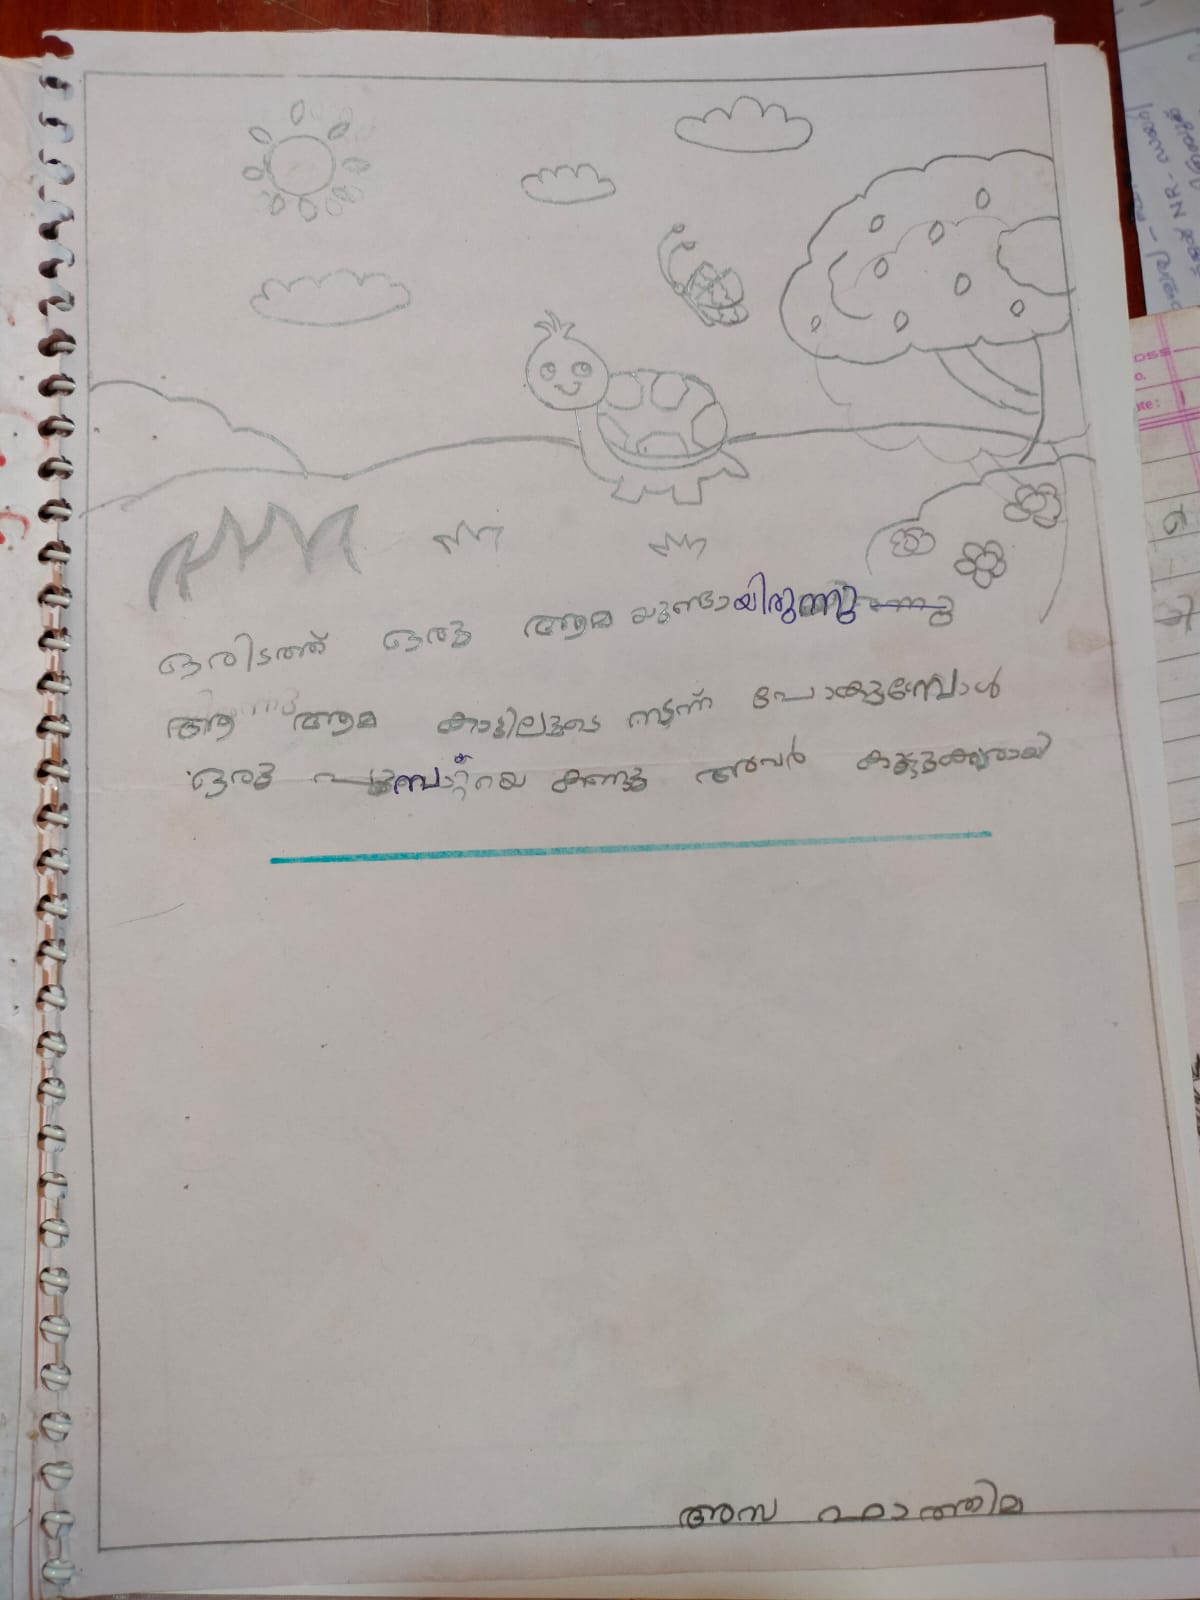 ഒരിടത്ത് ഒരു ആമ യുണ്ടായിരുന്നു
ആ ആമ കാട്ടിലൂടെ നടന്ന് പോകുമ്പോൾ
ഒരു പൂമ്പാറ്റയെ കണ്ടു അവർ കൂട്ടുകാരായി
അസ ഫാത്തിമ